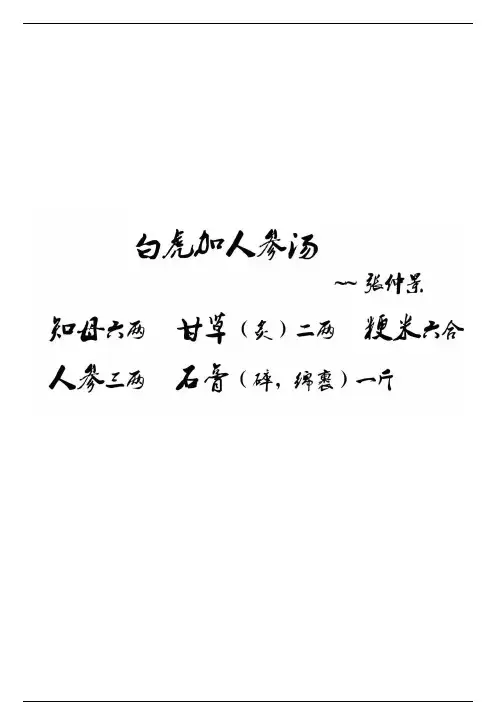 白虎加人参汤
~~张仲景
知母六两 甘草(炙)二两 粳米六合
人参三两 石膏(碎,绵裹)一斤